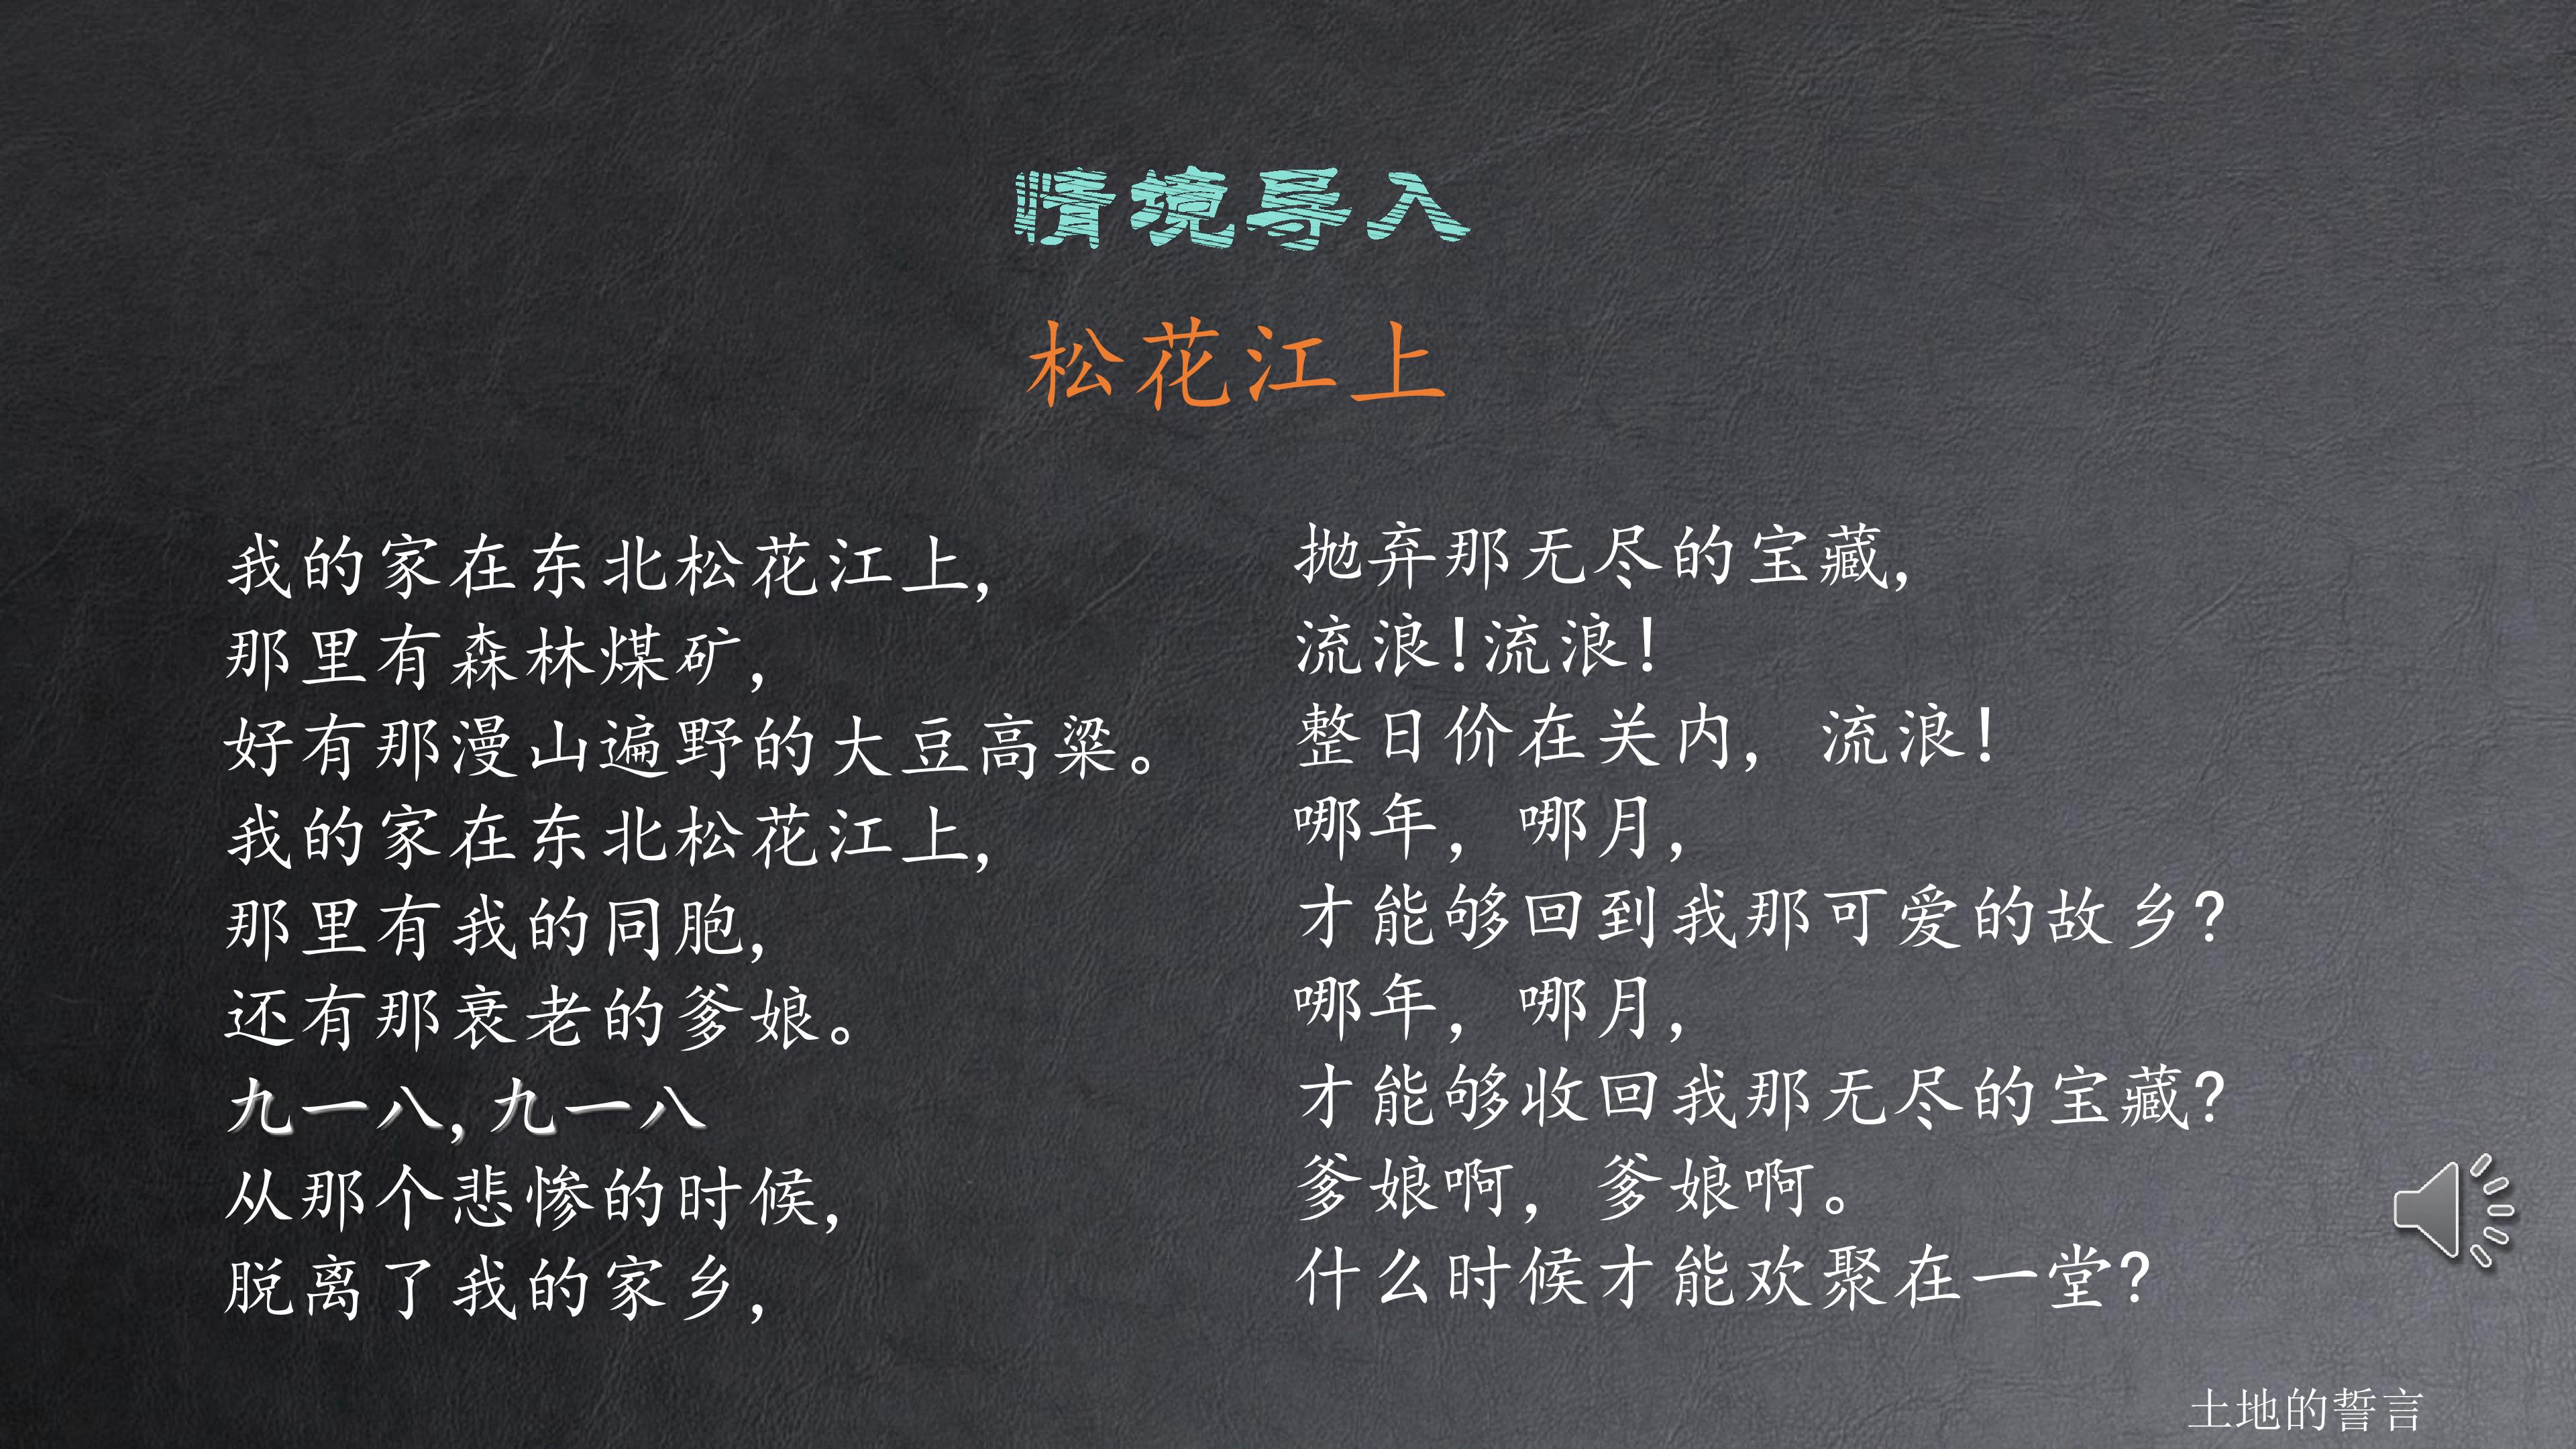 情境导入
松花江上
我的家在东北松花江上,
那里有森林煤矿,
好有那漫山遍野的大豆高粱。
我的家在东北松花江上,
那里有我的同胞,
还有那衰老的爹娘。
九一八,九一八
从那个悲惨的时候,
脱离了我的家乡,
抛弃那无尽的宝藏,
流浪!流浪!
整日价在关内, 流浪!
哪年, 哪月,
才能够回到我那可爱的故乡?
哪年, 哪月,
才能够收回我那无尽的宝藏?
爹娘啊, 爹娘啊。
什么时候才能欢聚在一堂?
土地的誓言